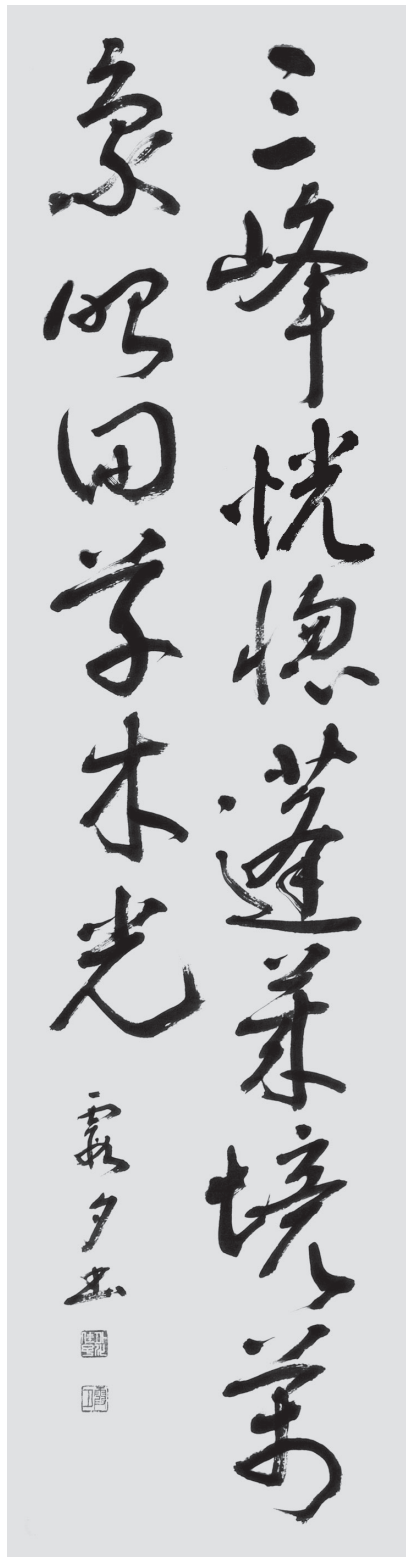 三峰恍惚蓬莱境萬
象昭回草木光
霞夕書